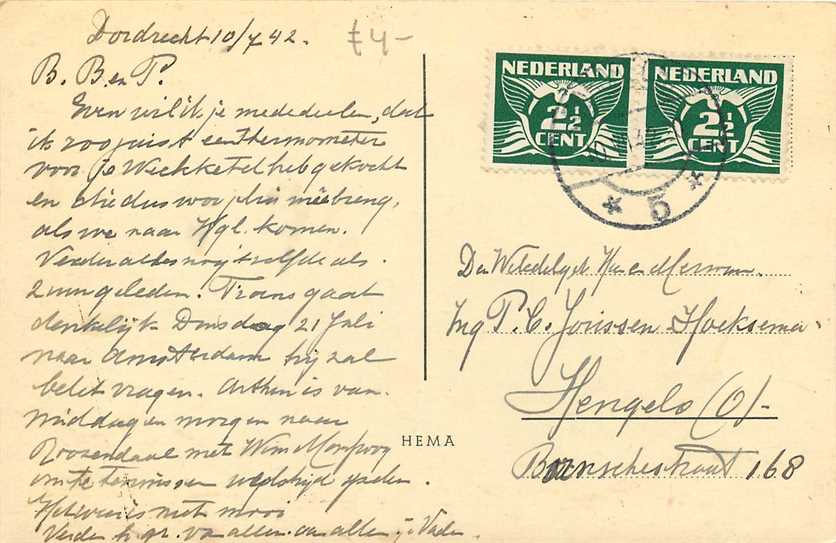 Dordrecht 10/7 42.
£4-
B. B en P.
Even wil ik je mededeelen, dat
ik zoo juist een thermometer
voor je Weckketel heb gekocht
en die dus voor je meebreng,
als we naar Hgl. komen.
Verder alles nog 't zelfde als
geleden. Frans gaat
denkelijk Dinsdag 21 Juli
naar Amsterdam hij zal
belet vragen. is van
middag en morgen naar
Roosendaal met Wim
om te tennissen wedstrijd spelen.
Het weer is niet mooi
Verder h. gr. van allen aan allen je Vader.
NEDERLAND
2½
CENT
NEDERLAND
2½
CENT
5
Den Heer en Mevrouw
Ing P. C. Jorissen Hoeksema
Hengelo (O)-
Bornschestraat 168
HEMA